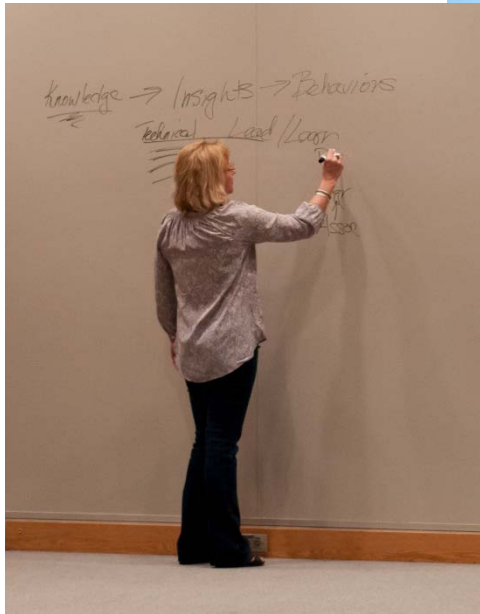 Knowledge → Insights → Behaviors
Technical Lead/Learn